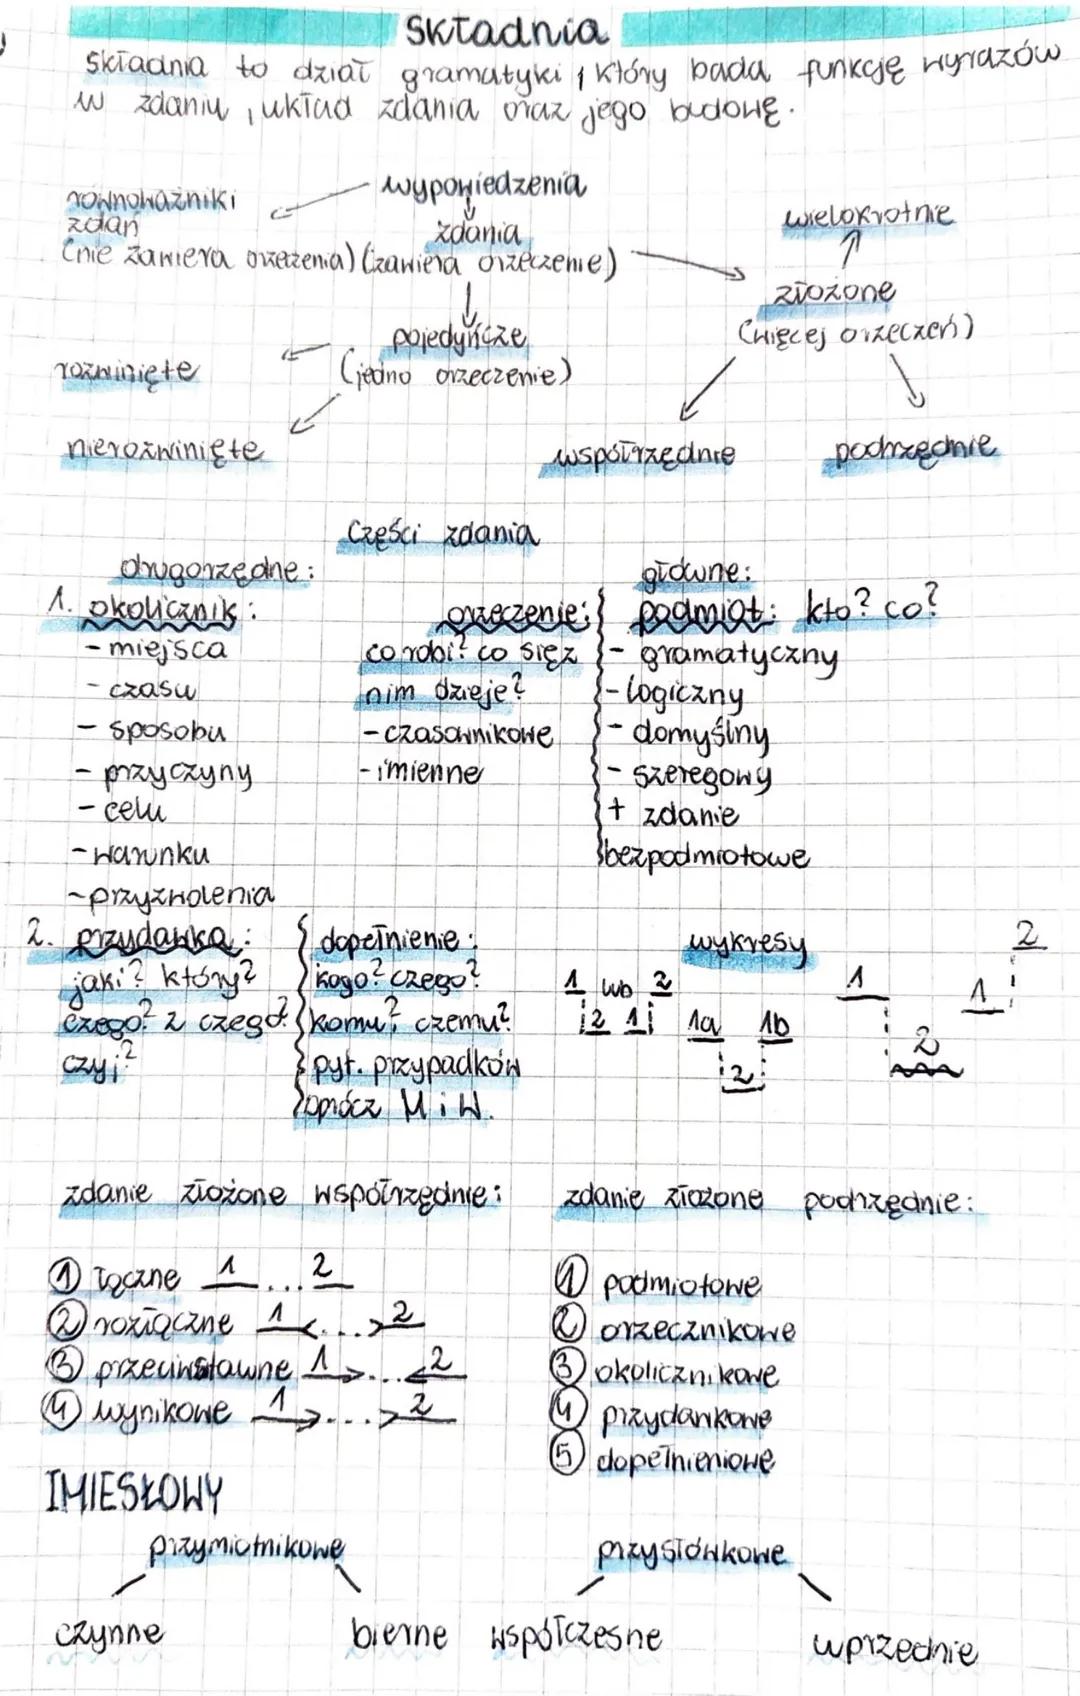 Składnia
Składnia to dział gramatyki, który bada funkcję wyrazów
w zdaniu, układ zdania oraz jego budowę.
wypowiedzenia
równoważniki
zdań
(nie zawiera orzeczenia)
zdania
(zawiera orzeczenie)
wielokrotnie
złożone
(więcej orzeczeń)
pojedyńcze
(jedno orzeczenie)
rozwinięte
nierozwinięte
współrzędnie
podrzędnie
Części zdania
drugorzędne:
główne:
1. okolicznik:
- miejsca
- czasu
- sposobu
- przyczyny
- celu
- warunku
- przyzwolenia
orzeczenie:
co robi? co się z
nim dzieje?
- czasownikowe
- imienne
podmiot: kto? co?
- gramatyczny
- logiczny
- domyślny
- szeregowy
+ zdanie
bezpodmiotowe
2. przydawka:
jaki? który?
czego? z czego?
czyj?
dopełnienie:
kogo? czego?
komu? czemu?
pyt. przypadków
oprócz M i W.
wykresy
1 lub 2
2 1
1a 1b
2
1
2
1
2
zdanie złożone współrzędnie:
① łączne 1 ... 2
② rozłączne 1 <...> 2
③ przeciwstawne 1 >...< 2
④ wynikowe 1 >...> 2
zdanie złożone podrzędnie:
① podmiotowe
② orzecznikowe
③ okolicznikowe
④ przydawkowe
⑤ dopełnieniowe
IMIESŁOWY
przymiotnikowe
przysłówkowe
czynne
bierne
współczesne
uprzednie